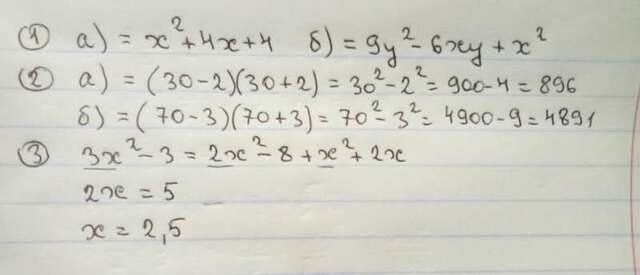 ① а) = x² + 4x + 4 б) = 9y² - 6xy + x²
② а) = (30 - 2)(30 + 2) = 30² - 2² = 900 - 4 = 896
б) = (70 - 3)(70 + 3) = 70² - 3² = 4900 - 9 = 4891
③ 3x² - 3 = 2x² - 8 + x² + 2x
2x = 5
x = 2,5